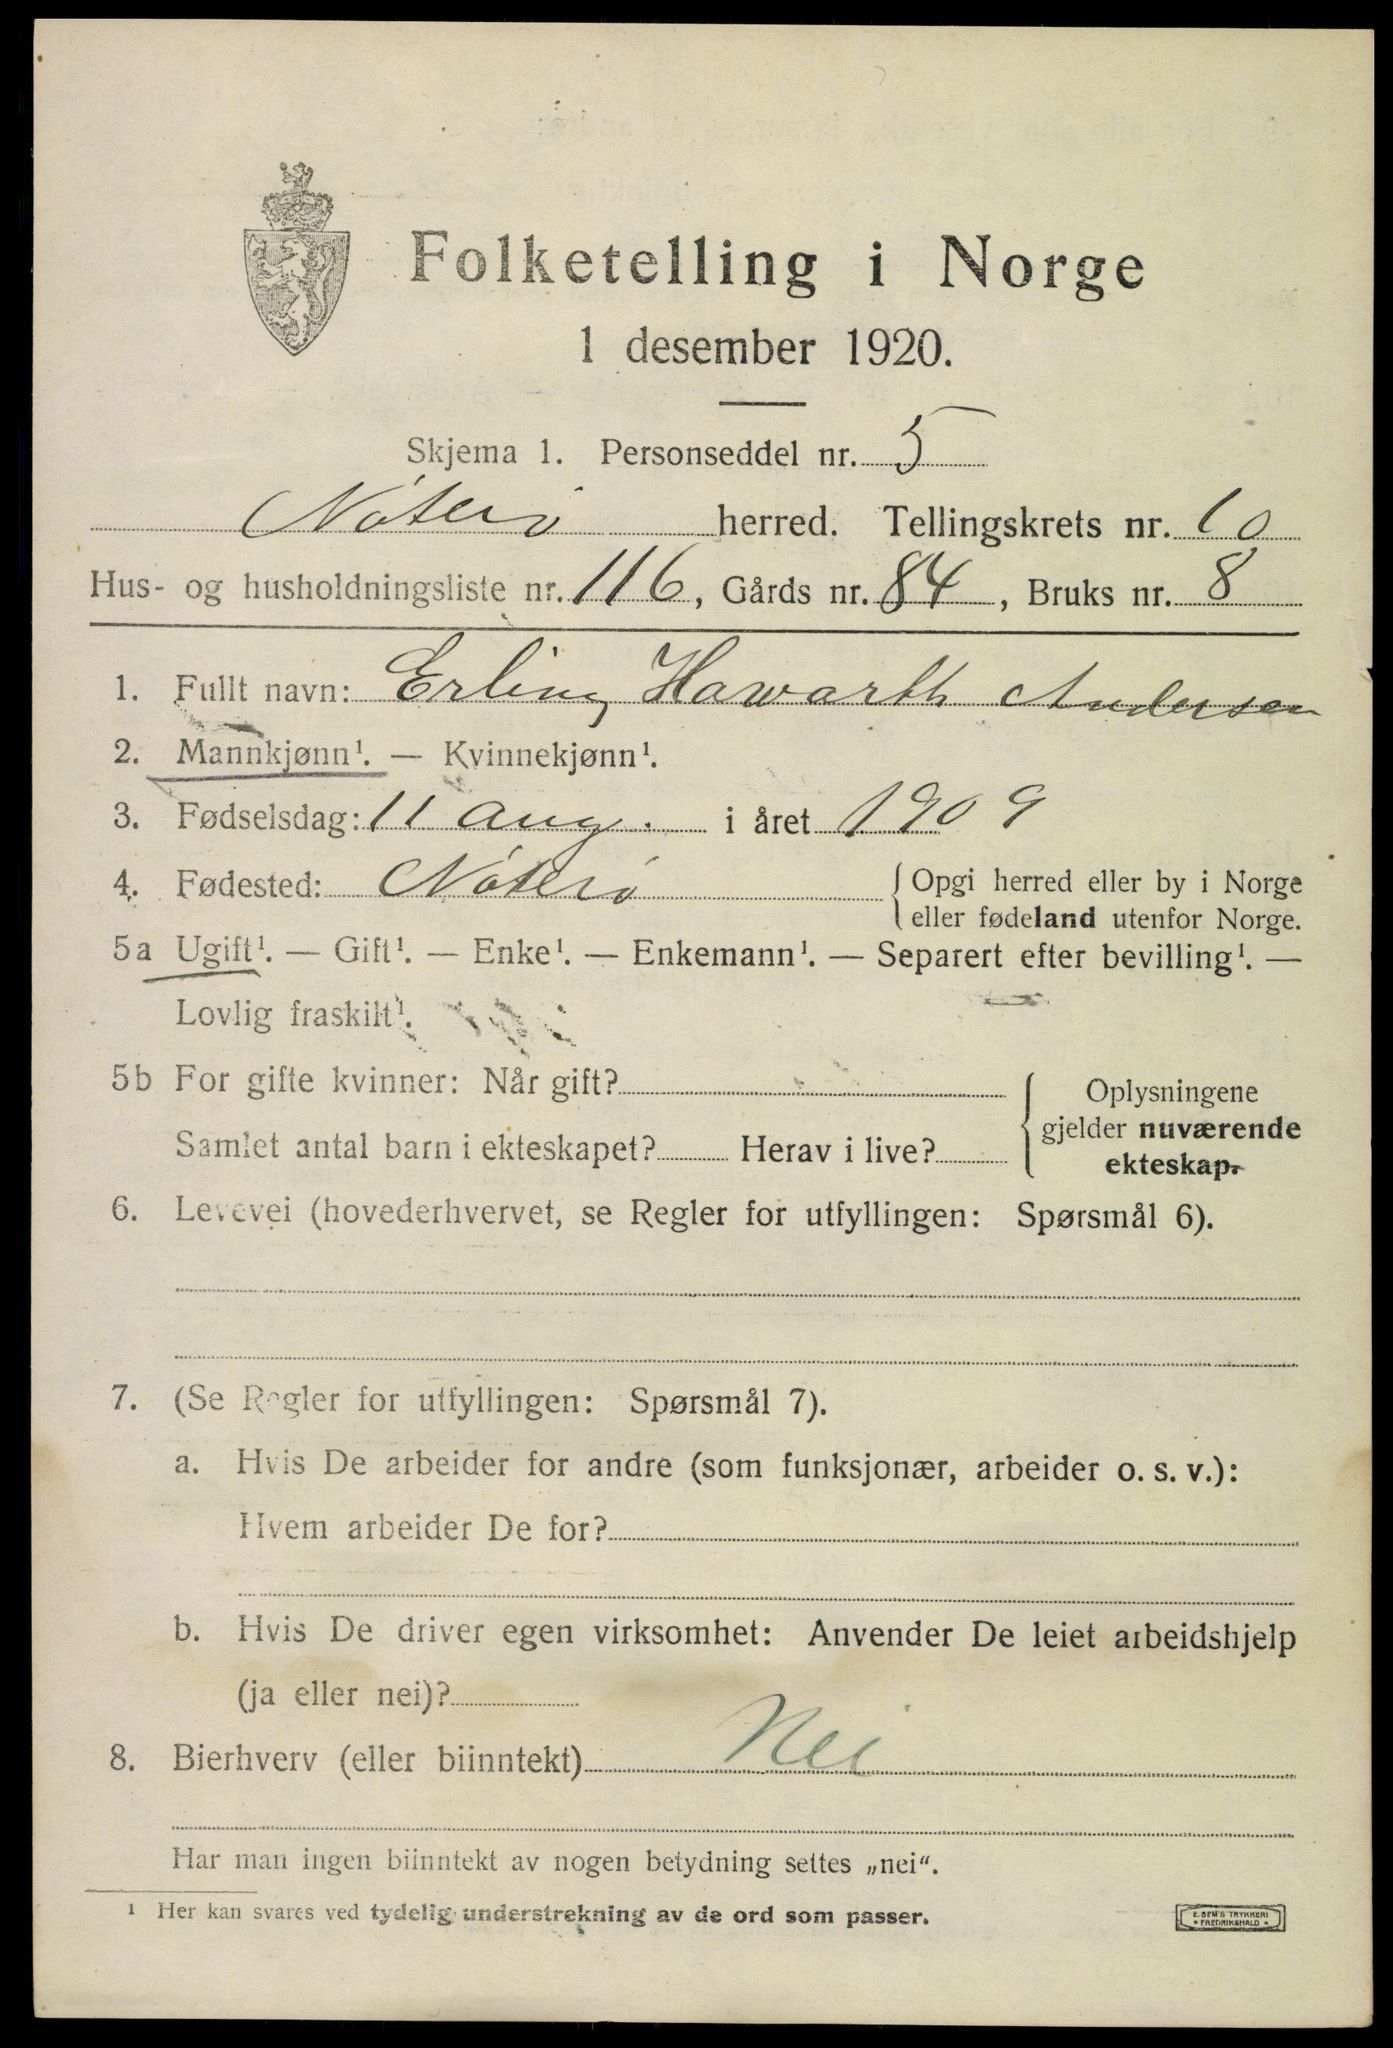 Folketelling i Norge
1 desember 1920.
Skjema 1. Personseddel nr. 5
Nøterø herred. Tellingskrets nr. 10
Hus- og husholdningsliste nr. 116, Gårds nr. 84, Bruks nr. 8
1. Fullt navn: Erling Hawarth Andersen
2. Mannkjønn¹. — Kvinnekjønn¹.
3. Fødselsdag: 11 aug. i året 1909
4. Fødested: Nøterø { Opgi herred eller by i Norge
eller fødeland utenfor Norge.
5a Ugift¹. — Gift¹. — Enke¹. — Enkemann¹. — Separert efter bevilling¹. —
Lovlig fraskilt¹.
5b For gifte kvinner: Når gift?
Samlet antal barn i ekteskapet? Herav i live?
{ Oplysningene
gjelder nuværende
ekteskap.
6. Levevei (hovederhvervet, se Regler for utfyllingen: Spørsmål 6).
7. (Se Regler for utfyllingen: Spørsmål 7).
a. Hvis De arbeider for andre (som funksjonær, arbeider o. s. v.):
Hvem arbeider De for?
b. Hvis De driver egen virksomhet: Anvender De leiet arbeidshjelp
(ja eller nei)?
8. Bierhverv (eller biinntekt) Nei
Har man ingen biinntekt av nogen betydning settes „nei“.
¹ Her kan svares ved tydelig understrekning av de ord som passer.
E. SEM'S TRYKKERI
* FREDRIKSHALD *